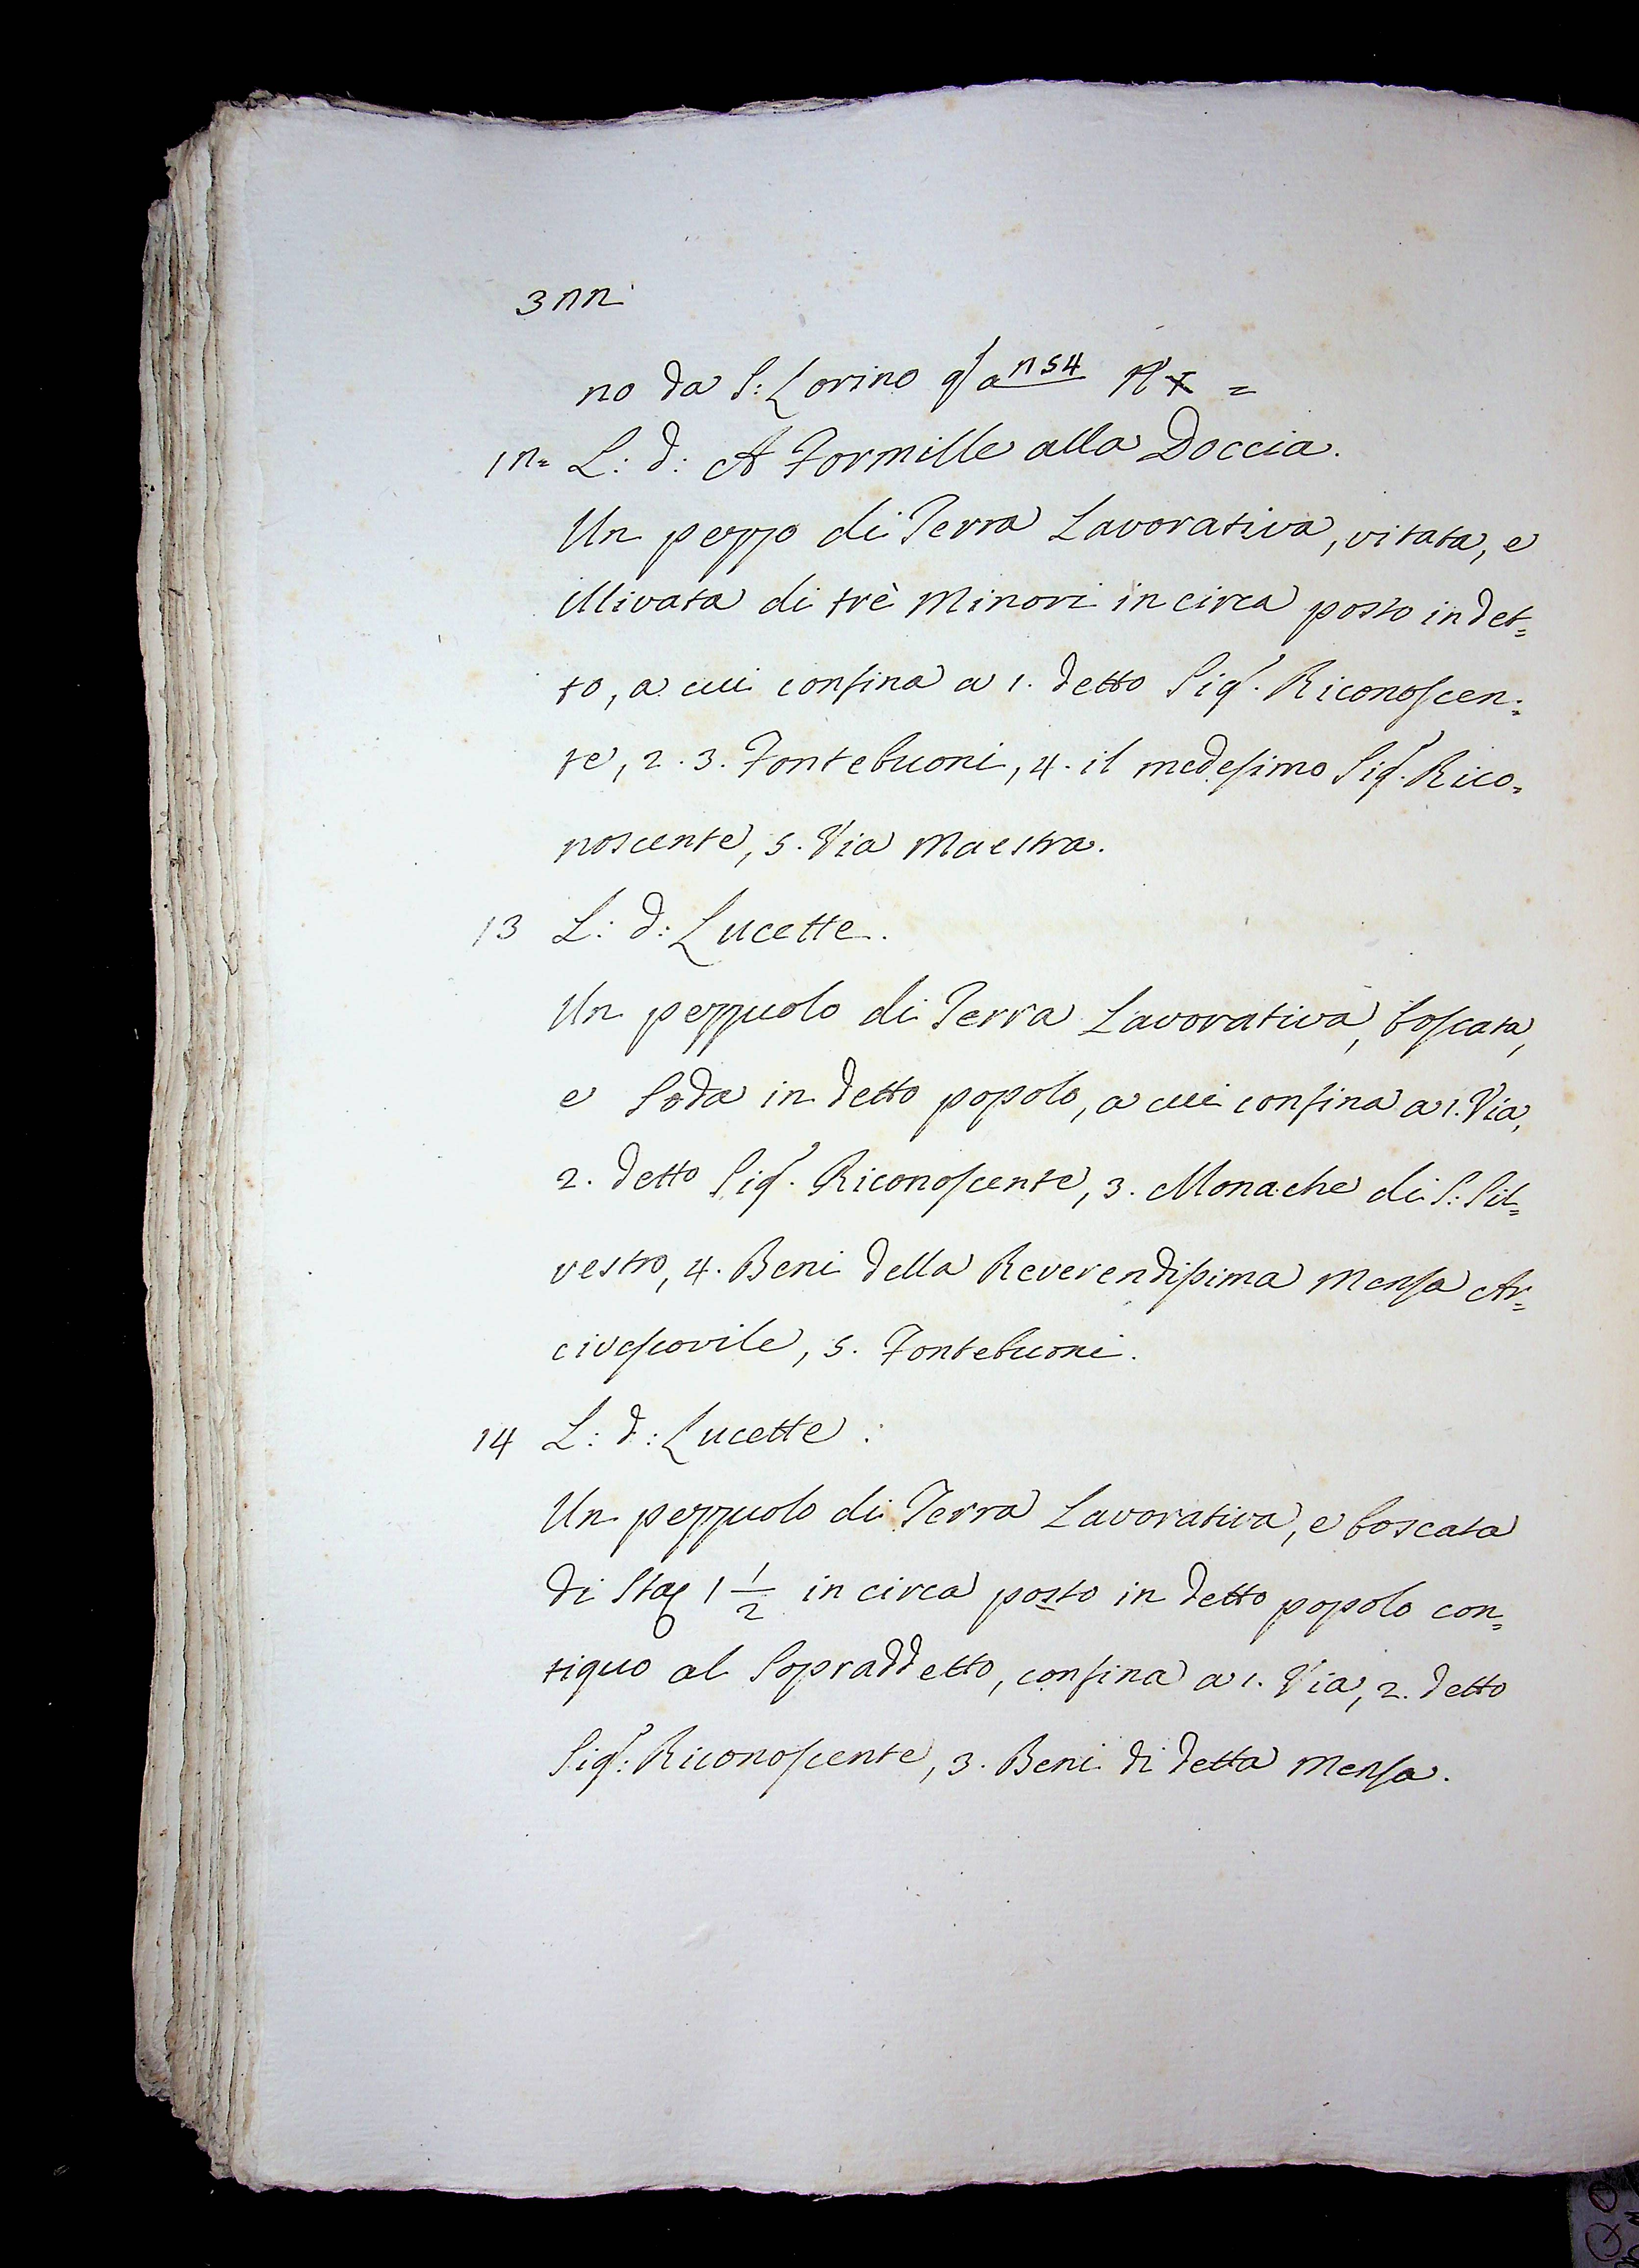 322
no da S: Lorino q a 254
12= L: d: A Formille alla Doccia.
Un pezzo di Terra Lavorativa, vitata, e
Ulivata di trè Minori in circa posto in det=
to, a cui confina a 1. detto Sig.r Riconoscen=
te, 2. 3. Fontebuoni, 4. il medesimo Sig.r Rico=
noscente, 5. Via Maestra.
13 L: d: Lucette.
Un pezzuolo di Terra Lavorativa, boscata,
e Soda in detto popolo, a cui confina a 1. Via,
2. detto Sig.r Riconoscente, 3. Monache di S: Sil=
vestro, 4. Beni della Reverendissima Mensa Ar=
civescovile, 5. Fontebuoni.
14 L: d: Lucette:
Un pezzuolo di Terra Lavorativa, e boscata
di Sta 1 1/2 in circa posto in detto popolo con=
tiguo al Sopraddetto, confina a 1. Via, 2. detto
Sig.r: Riconoscente, 3. Beni di detta Mensa.